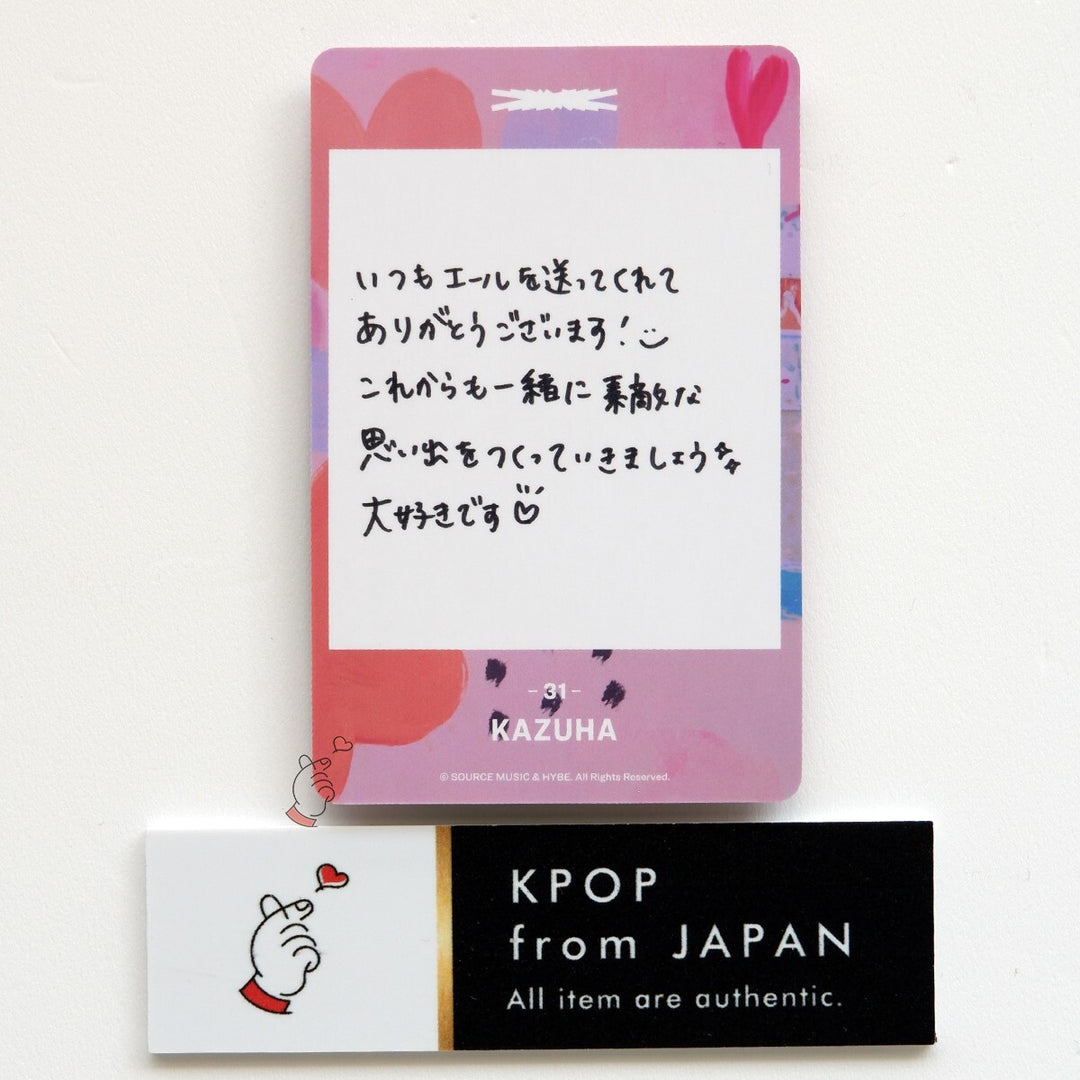 いつもエールを送ってくれて
ありがとうございます!
これからも一緒に素敵な
思い出をつくっていきましょう
大好きです
-31-
KAZUHA
© SOURCE MUSIC & HYBE. All Rights Reserved.
KPOP
from JAPAN
All item are authentic.